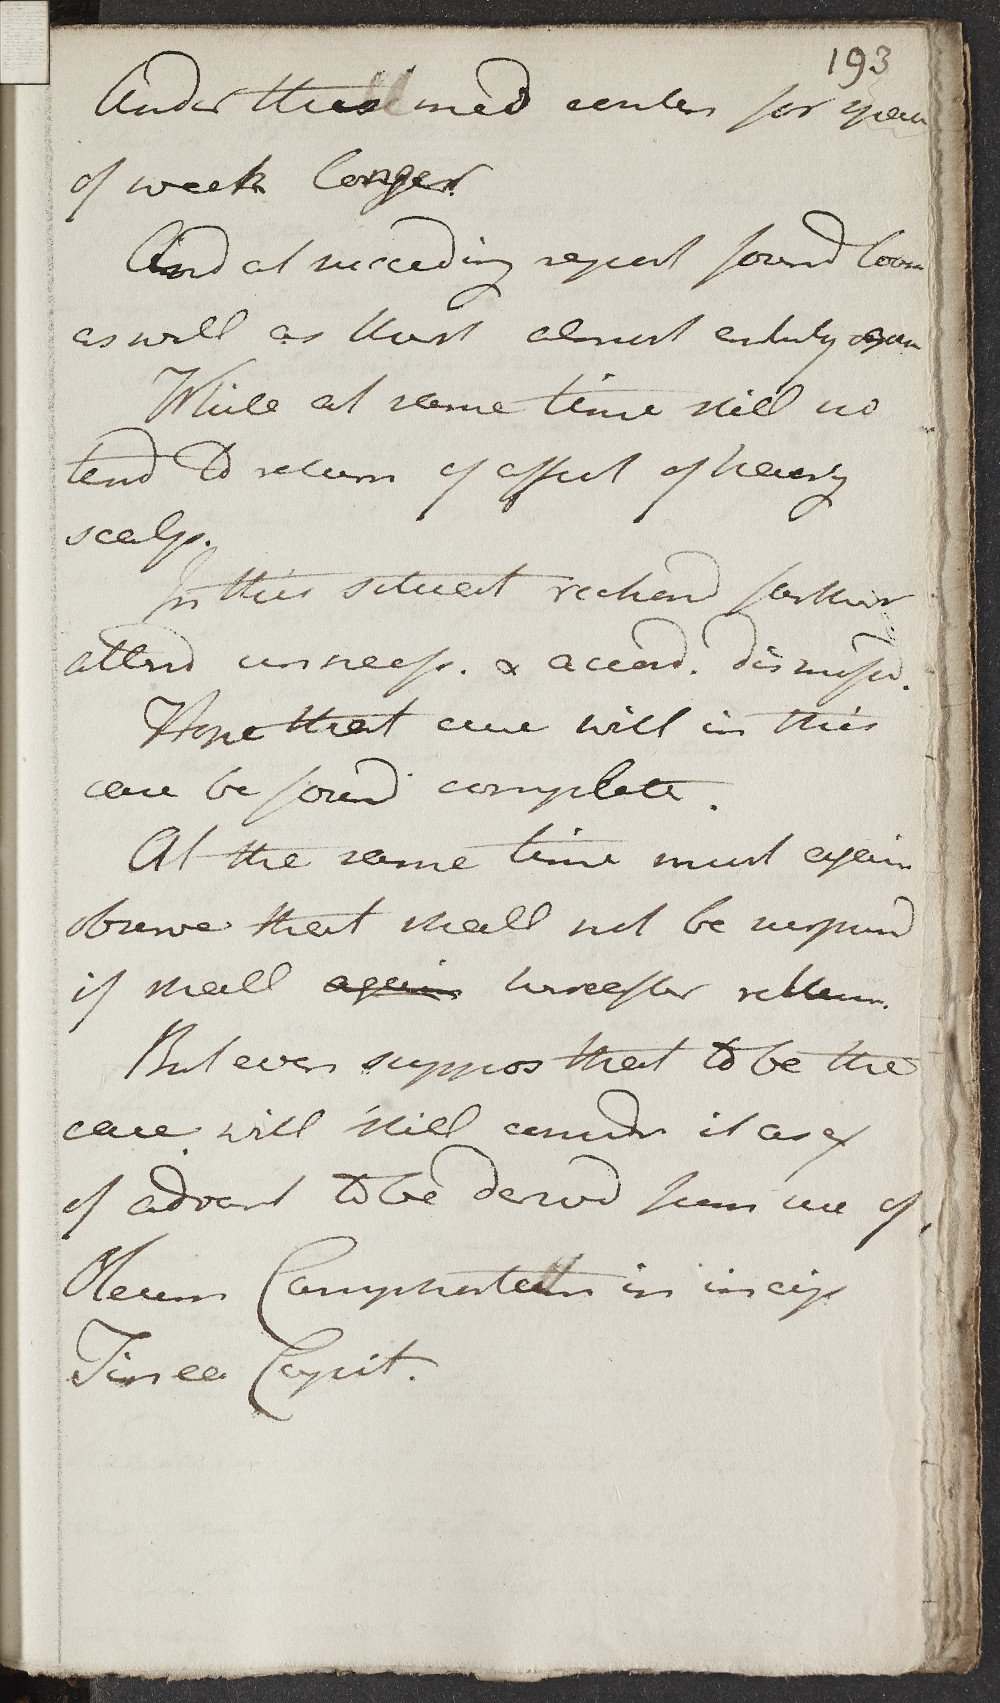 193
Under these med contin for space
of week longer
And at succeeding report found loose
as well as thirst almost entirely gone
While at same time still no
tend to return of affect of hairy
scalp.
In this situat reckond farther
attend unnecess. & accord. dismiss'd.
Hope that cure will in this
case be found complete.
At the same time must again
observe that shall not be surprised
if shall again hereafter return.
But even suppos that to be the
case will still consider it as ex
of advant to be derived from use of
Oleum Camphoratum in incip
Tinea Capit.